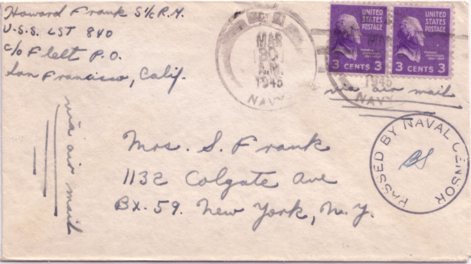 Howard Frank S1/c R.M.
U.S.S. LST 840
c/o Fleet P.O.
San Francisco, Calif.
via air mail
U.S. NAVY
MAR
20
A.M.
1945
NAVY
UNITED STATES POSTAGE
3 CENTS 3
UNITED STATES POSTAGE
3 CENTS 3
via air mail
PASSED BY NAVAL CENSOR
Mrs. S. Frank
1132 Colgate Ave
Bx. 59. New York, N.Y.